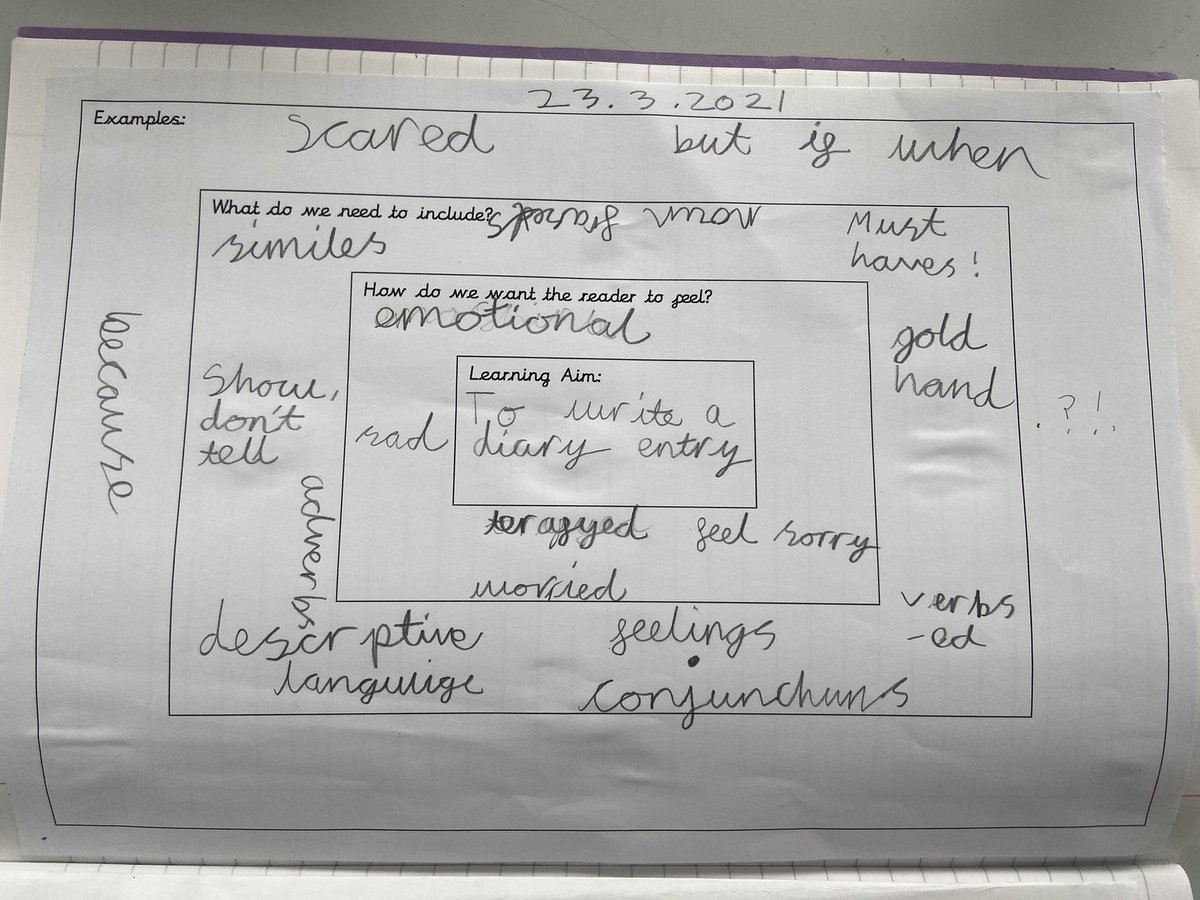 23.3.2021
Examples:
scared but if when
What do we need to include?
noun frases
similes
Must
haves!
How do we want the reader to feel?
emotional
Learning Aim:
To write a
diary entry
because
Show,
don't
tell
sad
gold
hand
?!
adverbs
teragyed feel sorry
worried
verbs
-ed
descrptive
languige
feelings
conjunchuns